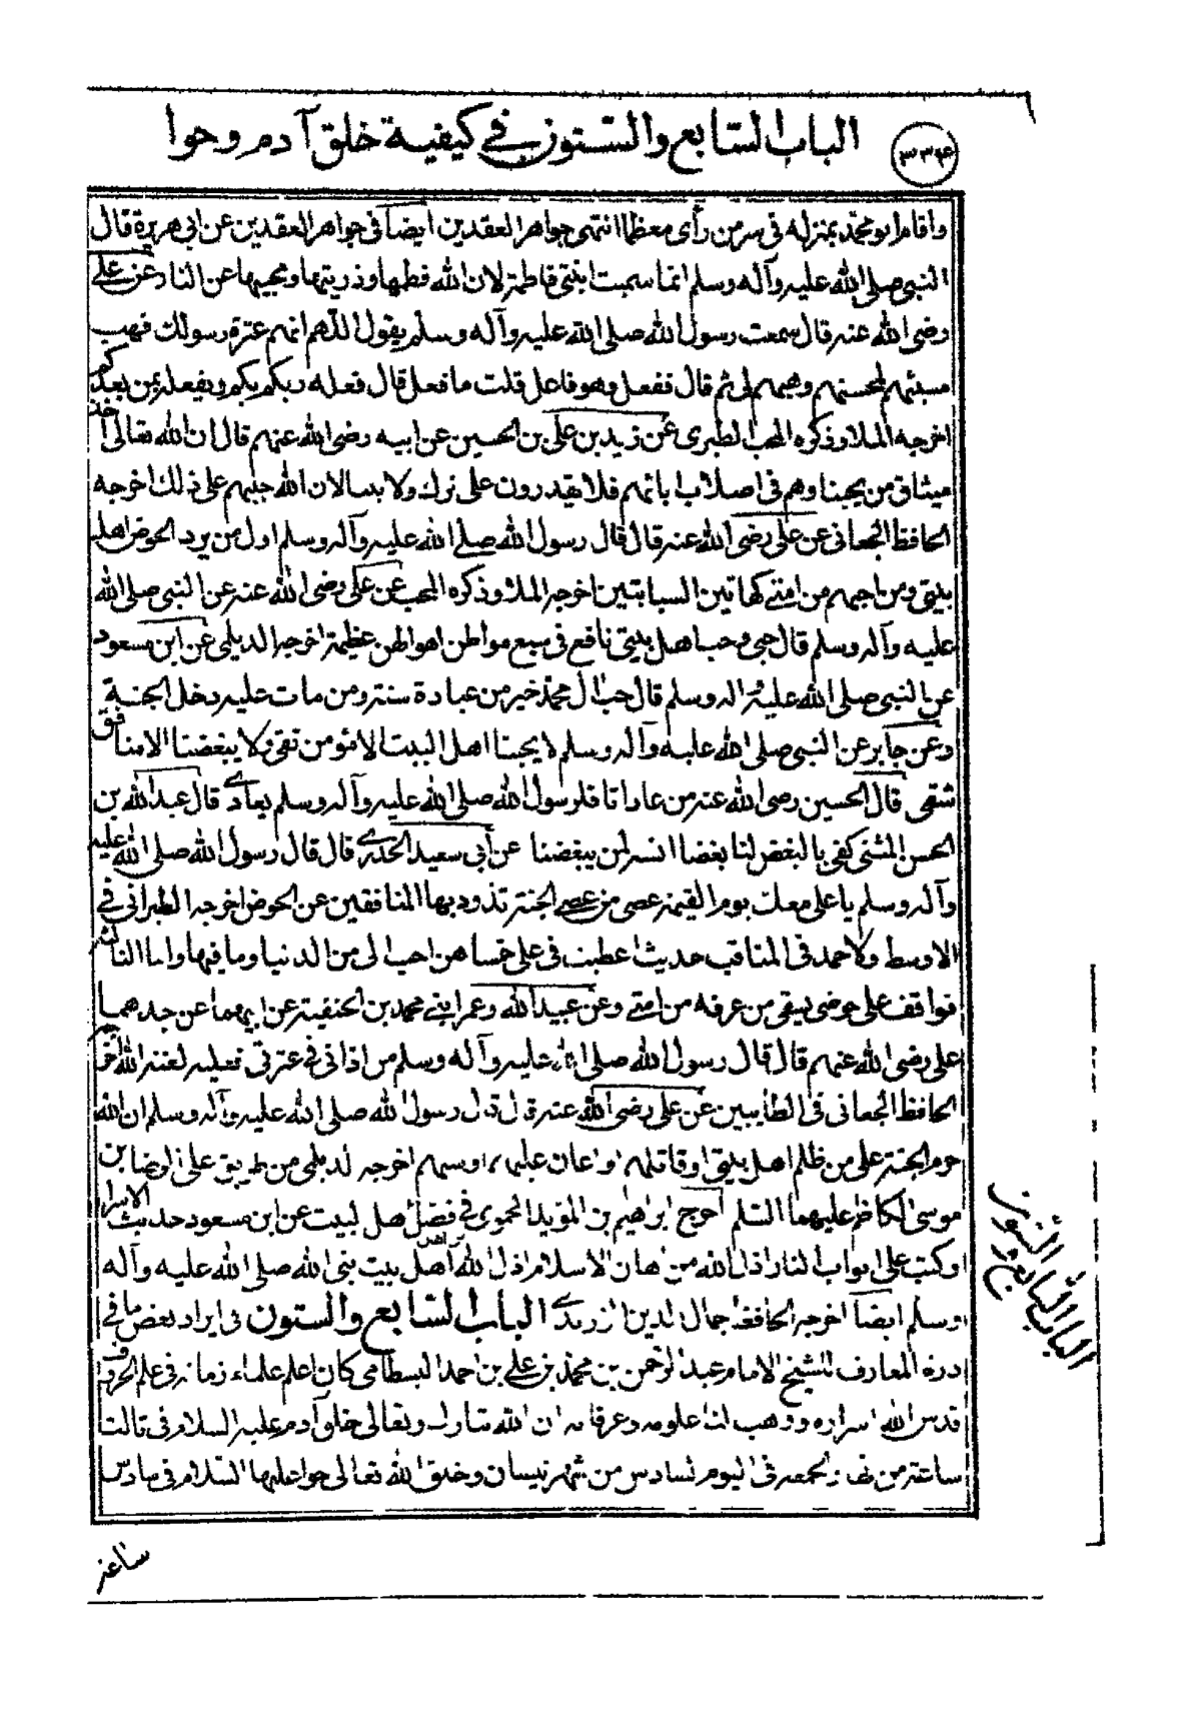 الباب السابع والستون في كيفية خلق آدم وحوا
٣٣٤
واقام ابو محمد بمنزله فى سر من رأى معظما انتهى جواهر العقدين ايضا فى جواهر العقدين عن ابى هريرة قال
النبى صلى الله عليه وآله وسلم انما سميت ابنتى فاطمة لان الله فطمها وذريتها ومحبيها عن النار عن على
رضى الله عنه قال سمعت رسول الله صلى الله عليه وآله وسلم يقول اللهم انهم عترة رسولك فهب
مسيئهم لمحسنهم وهبهم لى ثم قال ففعل وهو فاعل قلت ما فعل قال فعله ربكم بكم ويفعله بمن بعدكم
اخرجه الملا وذكره المحب الطبرى عن زيد بن على بن الحسين عن ابيه رضى الله عنهم قال ان الله تعالى اخذ
ميثاق من يحبنا وهم فى اصلاب ابائهم فلا يقدرون على ترك ولايتنا لان الله جبلهم على ذلك اخرجه
الحافظ الجعابى عن على رضى الله عنه قال قال رسول الله صلى الله عليه وآله وسلم اول من يرد الحوض اهل
بيتى ومن احبهم من امتى كهاتين السبابتين اخرجه الملا وذكره المحب عن على رضى الله عنه عن النبى صلى الله
عليه وآله وسلم قال حبى وحب اهل بيتى نافع فى سبع مواطن اهوالهن عظيمة اخرجه الديلمى عن ابن مسعود
عن النبى صلى الله عليه وآله وسلم قال حب آل محمد خير من عبادة سنة ومن مات عليه دخل الجنة
وعن جابر عن النبى صلى الله عليه وآله وسلم لا يحبنا اهل البيت الا مؤمن تقى ولا يبغضنا الا منافق
شقى قال الحسين رضى الله عنه من عادانا فلرسول الله صلى الله عليه وآله وسلم يعادى قال عبد الله بن
الحسن المثنى كفى بالبغض لنا بغضا انسه لمن يبغضنا عن أبى سعيد الخدرى قال قال رسول الله صلى الله عليه
وآله وسلم يا على معك يوم القيمة عصى من عصى الجنة تذود بها المنافقين عن الحوض اخرجه الطبرانى في
الاوسط ولاحمد فى المناقب حديث اعطيت فى على خمسا هن احب الى من الدنيا وما فيها واما الثالثة
فواقف على حوضى يسقى من عرفه من امتى وعن عبيد الله وعمر ابنى محمد بن الحنفية عن ابيهما عن جدهما
على رضى الله عنهم قال قال رسول الله صلى الله عليه وآله وسلم من اذانى فى عترتى فعليه لعنة الله اخرجه
الحافظ الجعابى فى الطالبيين عن على رضى الله عنه قال قال رسول الله صلى الله عليه وآله وسلم ان الله
حرم الجنة على من ظلم اهل بيتى او قاتلهم او اعان عليهم او سبهم اخرجه الديلمى من طريق على الرضا بن
موسى الكاظم عليهما السلم اخرج ابراهيم بن المؤيد الحموى فى فضل اهل البيت عن ابن مسعود حديث الاسرا
وكتب على ابواب النار اذل الله من اهان الاسلام اذل الله من اهان اهل بيت نبى الله صلى الله عليه وآله
وسلم ايضا اخرجه الحافظ جمال الدين الزرندى الباب السابع والستون فى ايراد بعض ما فى
درة المعارف للشيخ الامام عبد الرحمن بن محمد بن على بن احمد البسطامى كان اعلم علماء زمانه فى علم الحروف
قدس الله اسراره ووهب لنا علومه وعرفانه ان الله تبارك وتعالى خلق آدم عليه السلام فى ثالث
ساعة من نهار الجمعة فى اليوم السادس من شهر نيسان وخلق الله تعالى حوا عليها السلام فى سادس
ساعة
الباب السابع والستون